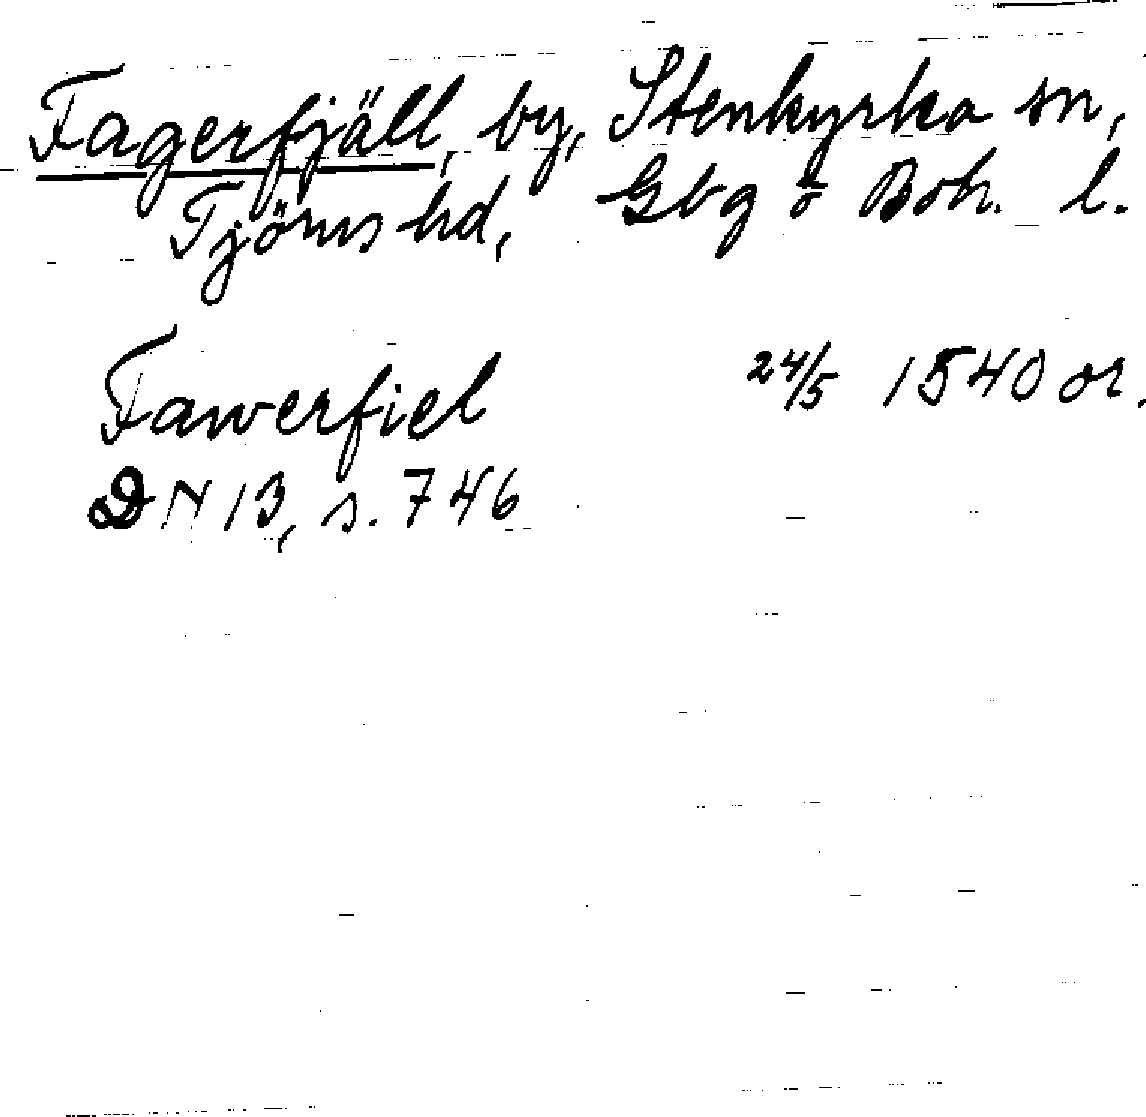 Fagerfjäll, by, Stenkyrka sn,
Tjörns hd, Gbg o Boh. l.
Fawerfiel 24/5 1540 or.
DN 13, s. 746